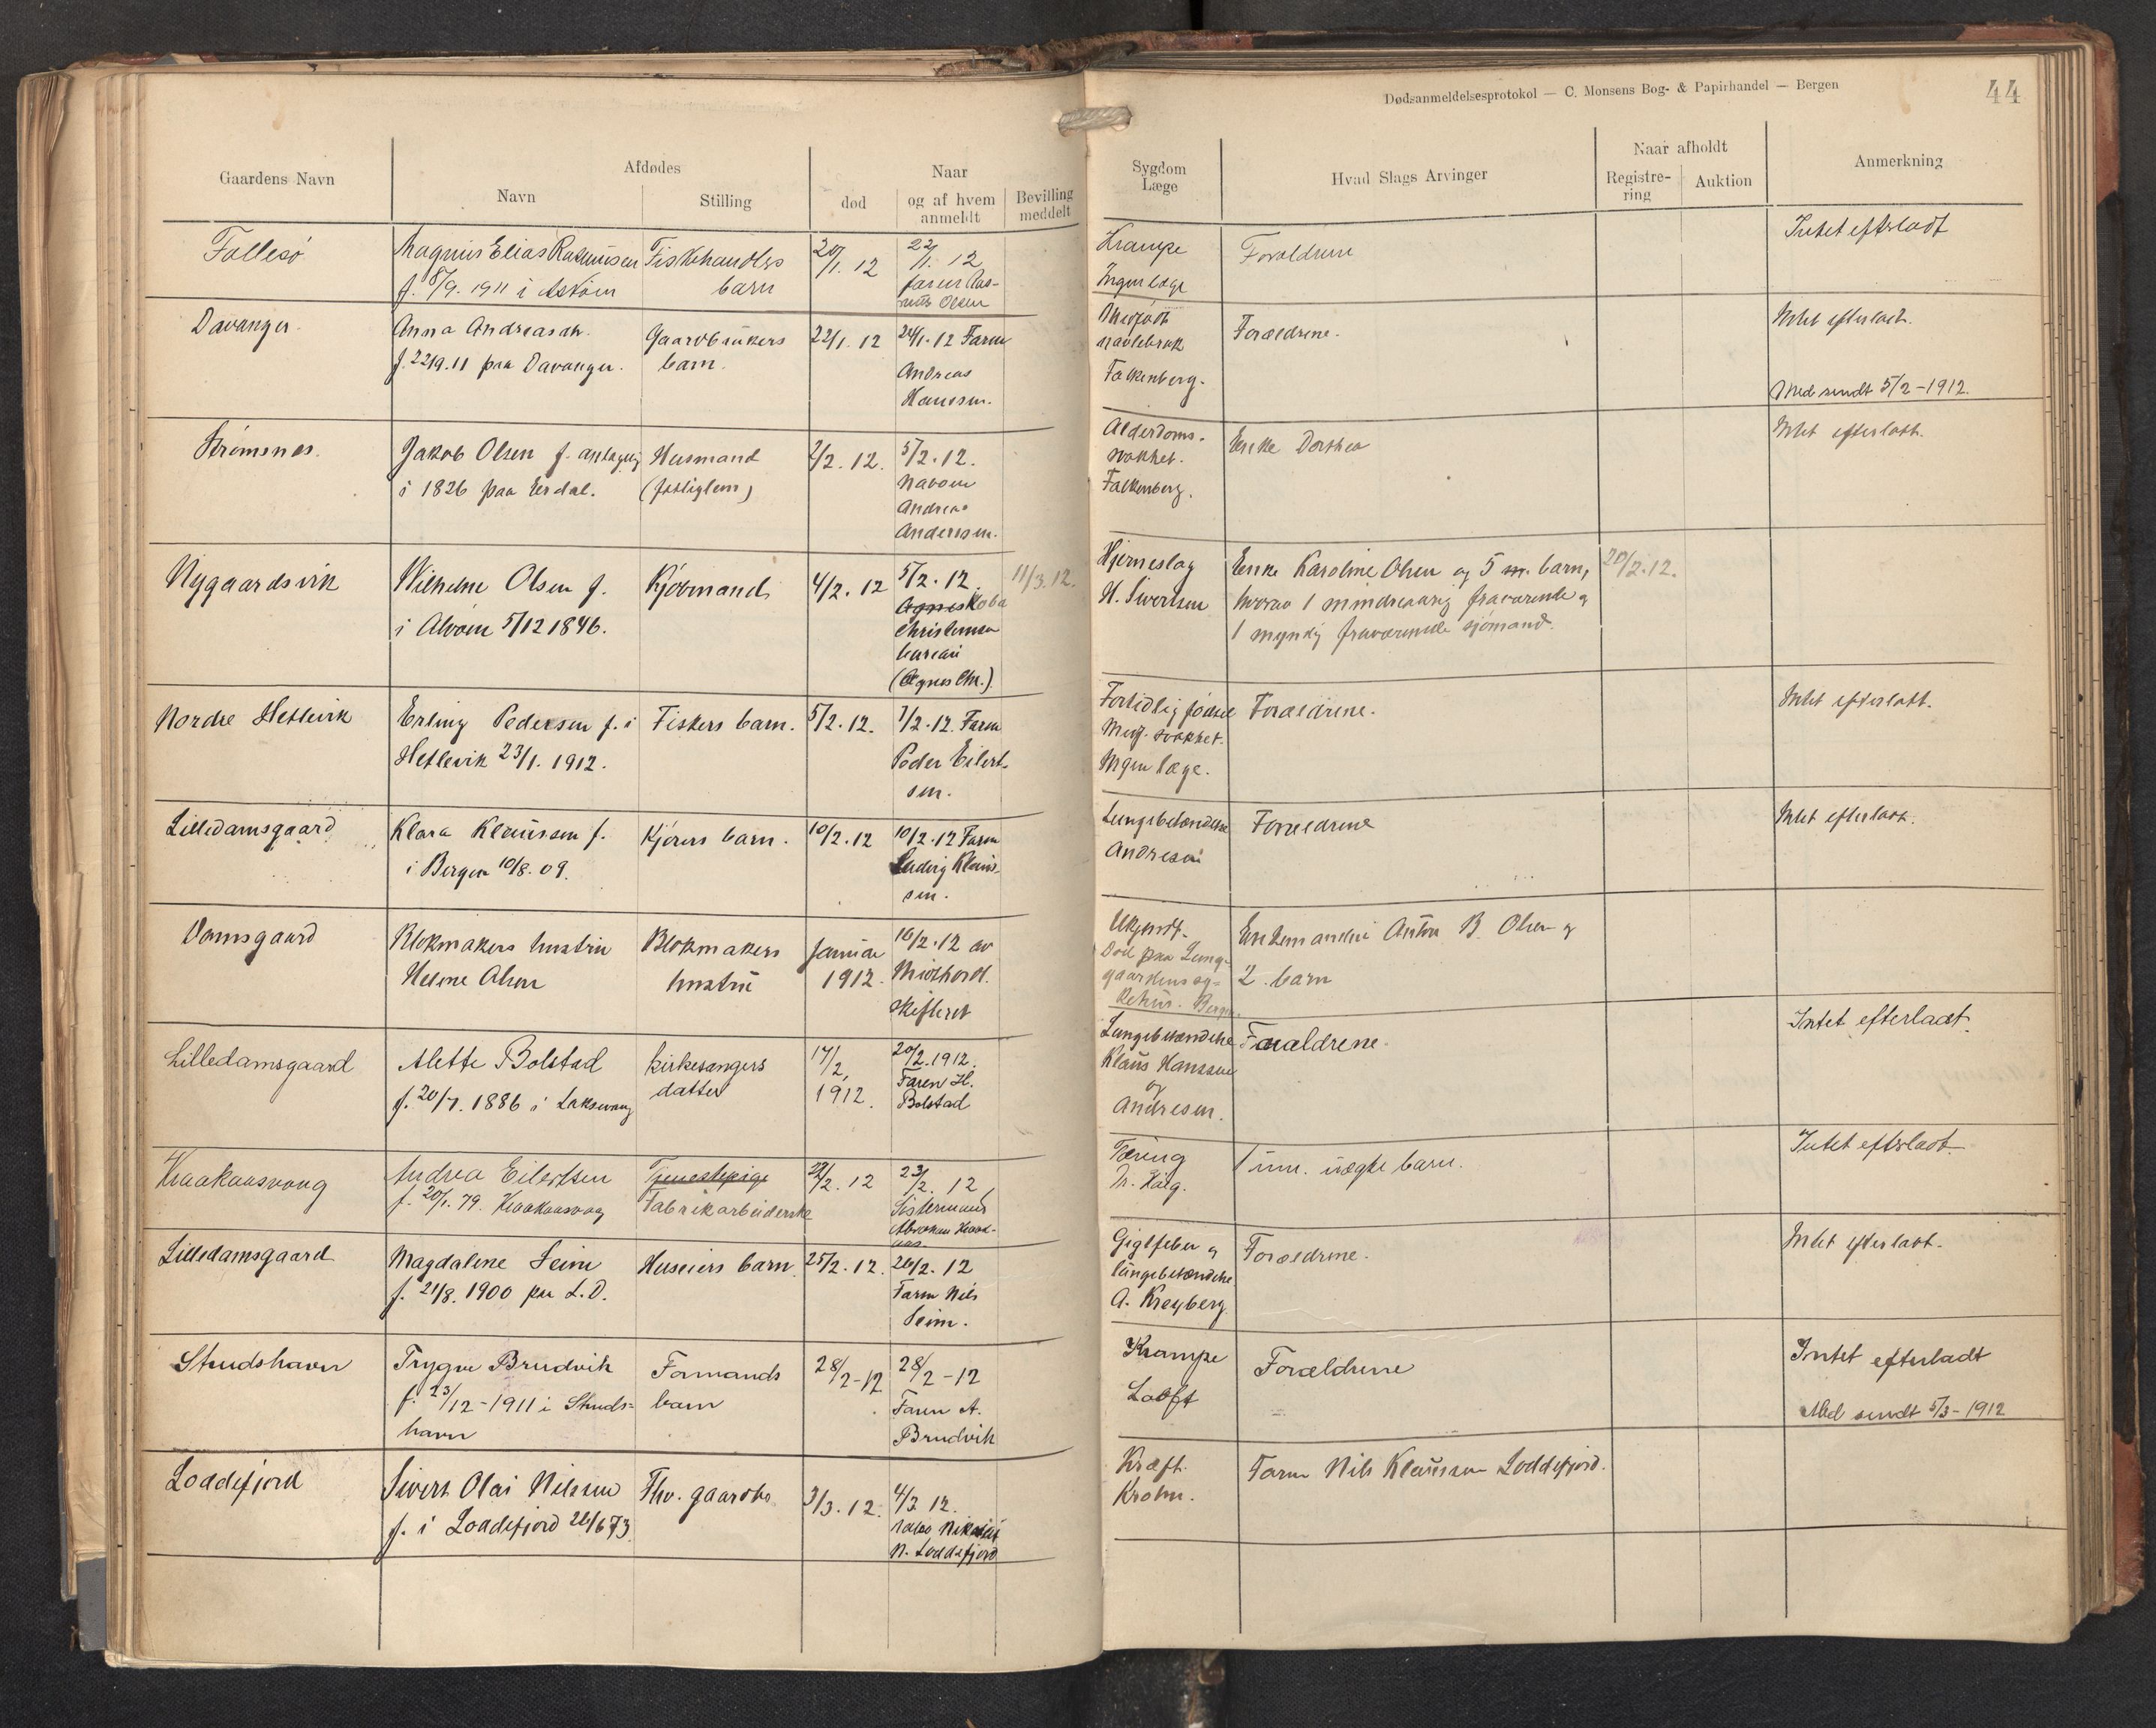 Dødsanmeldelsesprotokol — C. Monsens Bog- & Papirhandel — Bergen
44
Gaardens Navn
Afdødes
Navn
Stilling
død
Naar
og af hvem
anmeldt
Bevilling
meddelt
Sygdom
Læge
Hvad Slags Arvinger
Naar afholdt
Registre-
ring
Auktion
Anmerkning
Follesö
Magnus Elias Rasmussen
f. 8/9. 1911 i Askøen
Fiskehandlers
barn
20/1. 12
22/1. 12
faren Ras-
mus Olsen
Krampe
Ingen læge
Forældrene
Intet efterladt
Davanger
Anna Andreasdtr.
f. 22/9.11 paa Davanger.
Gaardbrukers
barn.
22/1. 12
24/1.12 Faren
Andreas
Hansen.
Medfødt
navlebrok
Falkenberg.
Forældrene.
Intet efterladt.
Med sendt 5/2-1912.
Strömsnes.
Jakob Olsen f. antagelig
i 1826 paa Erdal.
Husmand
2/2. 12.
5/2. 12.
naboen
Andreas
Andersen.
Alderdoms-
svakhet.
Falkenberg.
Enke Dorthea
Intet efterladt.
Nygaardsvik
Wilhelm Olsen f.
i Alvøen 5/12 1846.
Kjøbmand
4/2. 12
5/2. 12.
Agnes
Christensen
bureau
(Agnes Chr.)
11/3.12.
Hjerneslag
H. Sivertsen
Enke Karoline Olsen og 5 m. barn,
hvorav 1 mindreaarig fraværende og
1 myndig fraværende sjømand.
20/2.12.
Nordre Hetlevik
Erling Pedersen f. i
Hetlevik 23/1. 1912.
Fiskers barn.
5/2. 12.
7/2. 12. Faren
Peder Eilert-
sen.
Fortidlig fødsel
Medf. svakhet.
Ingen læge.
Forældrene.
Intet efterladt.
Lilledamsgaard
Klara Klaussen f.
i Bergen 10/8. 09.
Kjørers barn.
10/2. 12
10/2. 12 Faren
Ludvig Klaus-
sen.
Lungebetændelse
Andresen
Forældrene
Intet efterladt.
Damsgaard
Blokmakers hustru
Helene Olsen
Blokmakers
hustru
Januar
1912.
16/2. 12 av
Midthord.
skifteret
Ukjendt.
Död paa Lung-
gaardens sy-
kehus. Bergen.
Enkemanden Anton B. Olsen og
2. barn
Lilledamsgaard
Alette Bolstad
f. 20/7. 1886 i Laksevaag
kirkesangers
datter
17/2,
1912.
20/2. 1912.
Faren H.
Bolstad
Lungebetændelse
Klaus Hanssen
og
Andresen.
Forældrene.
Intet efterladt.
Kraakaasvaag
Andrea Eilertsen
f. 20/1. 79. Kraakaasvaag
Tjenestepige
Fabrikarbeiderske
22/2. 12
23/2. 12,
Abraham Kraak-
aas.
Tæring
Dr. Haig.
1 um. uægte barn.
Intet efterladt.
Lilledamsgaard
Magdalene Seim
f. 21/8. 1900 paa L.D.
Huseiers barn
25/2. 12.
26/2. 12
Faren Nils
Seim.
Gigtfeber og
lungebetændelse
A. Kreyberg
Forældrene.
Intet efterladt.
Strudshavn
Trygve Brudvik
f. 23/12-1911 i Struds-
havn
Formands
barn
28/2-12
28/2-12
Faren A.
Brudvik
Krampe
Looft
Forældrene
Intet efterladt
Med sendt 5/3-1912
Loddefjord
Sivert Olai Nilssen
f. i Loddefjord 26/6 73
Fhv. gaardbr.
3/3. 12.
4/3 12.
N. Loddefjord
Kræft.
Krohn.
Faren Nils Klaussen Loddefjord.